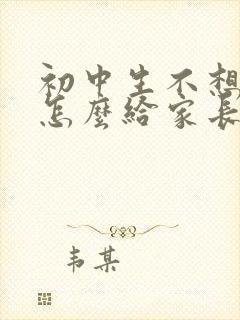 初中生不想
怎麼給家長
韦某